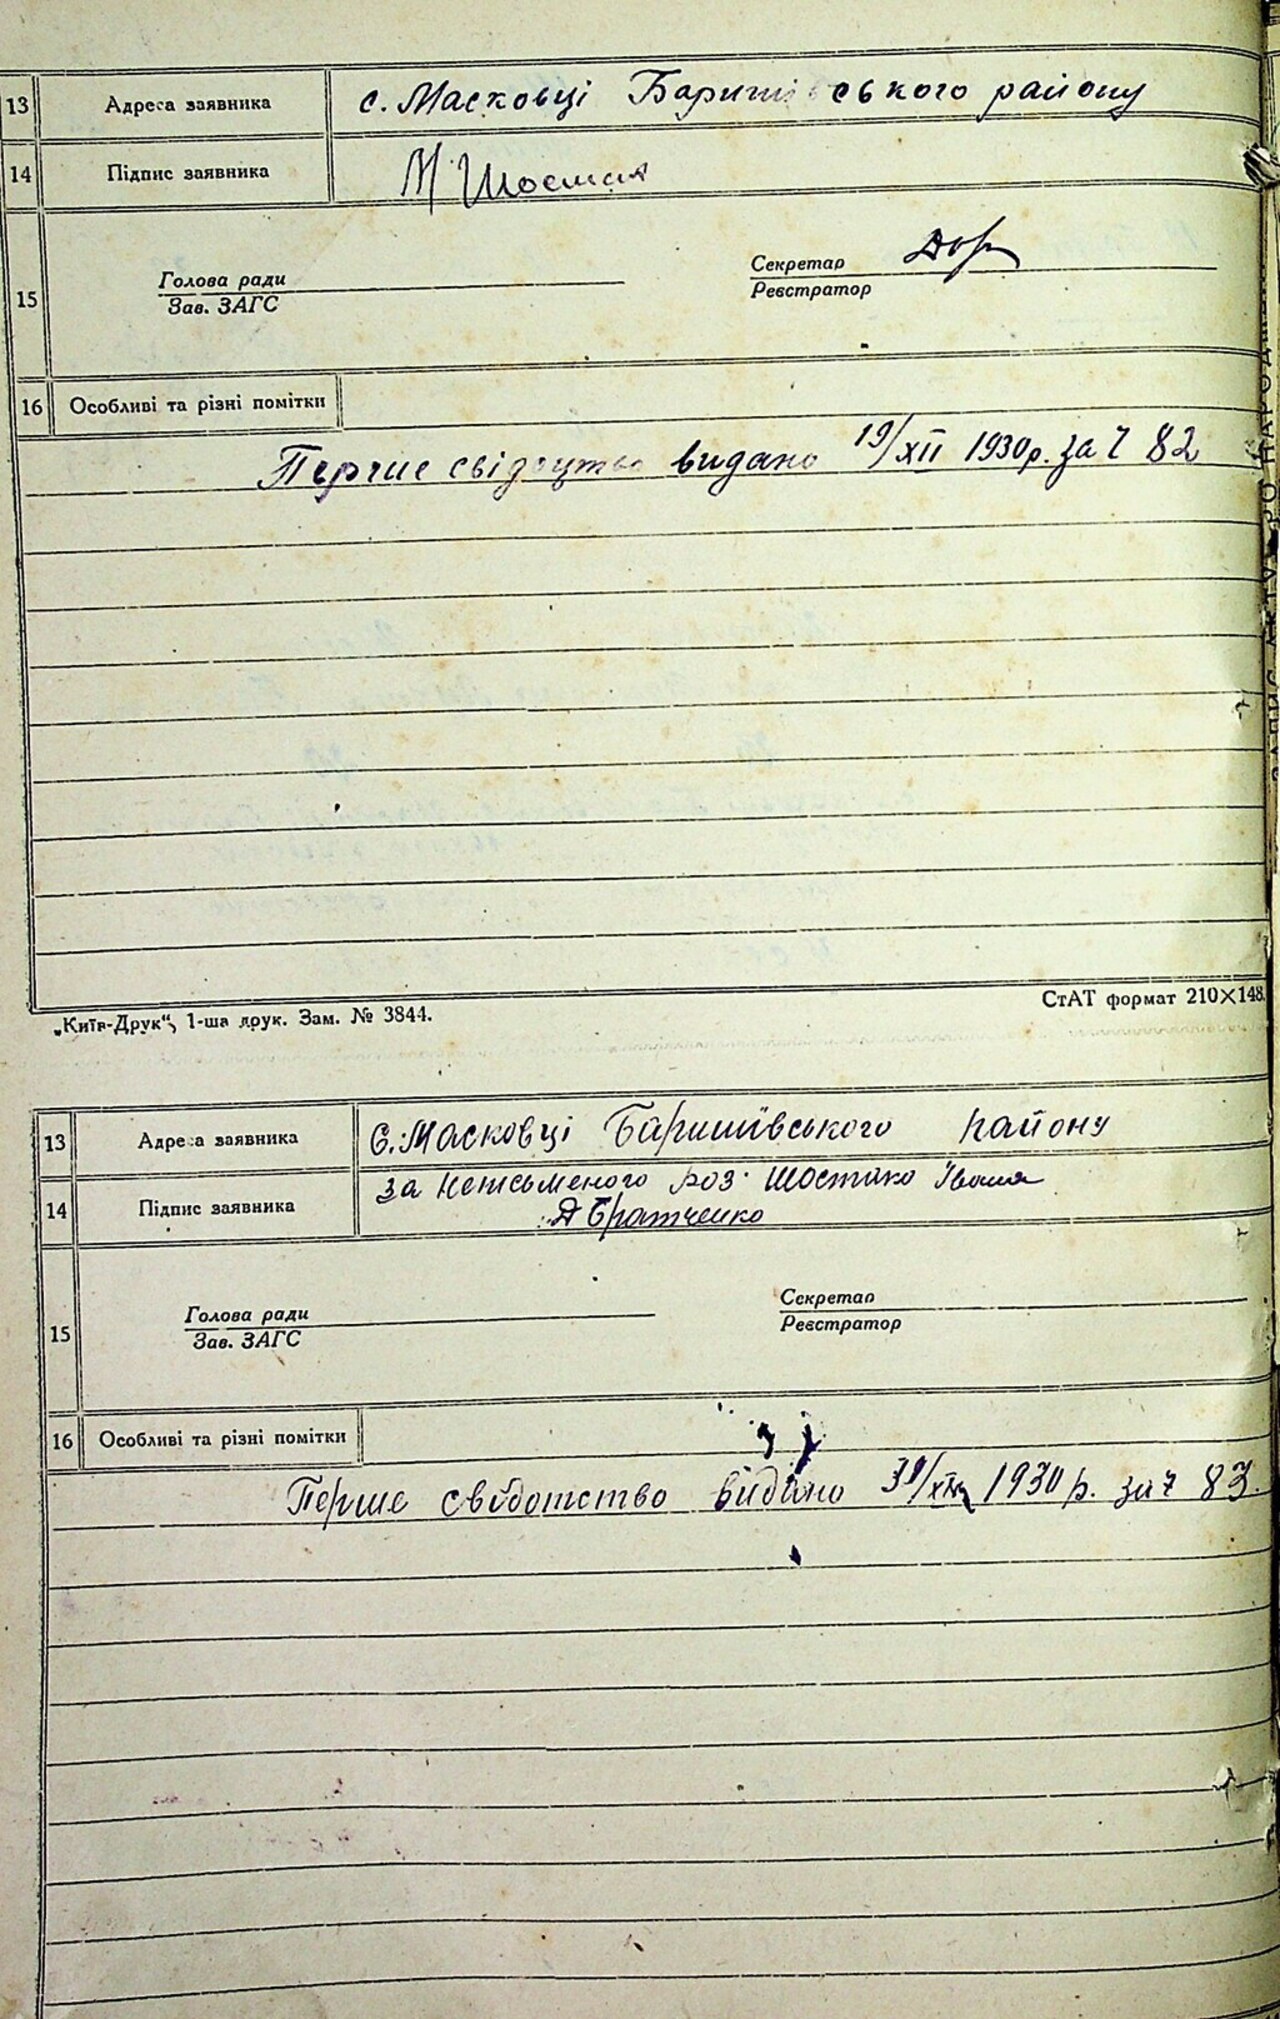 13 Адреса заявника с. Масковці Баришівського району
14 Підпис заявника М Шостак
Голова ради Секретар
15 Зав. ЗАГС Реєстратор
16 Особливі та різні помітки
Перше свідоцтво видано 19/XII 1930р. за Ч 82
„Київ-Друк“, 1-ша друк. Зам. № 3844. СтАТ формат 210×148.
13 Адреса заявника С. Масковці Баришівського району
14 Підпис заявника за неписьменого роз. Шостако Івана
Братченко
Голова ради Секретар
15 Зав. ЗАГС Реєстратор
16 Особливі та різні помітки
Перше свідотство видано 1930 р. за ч 83.